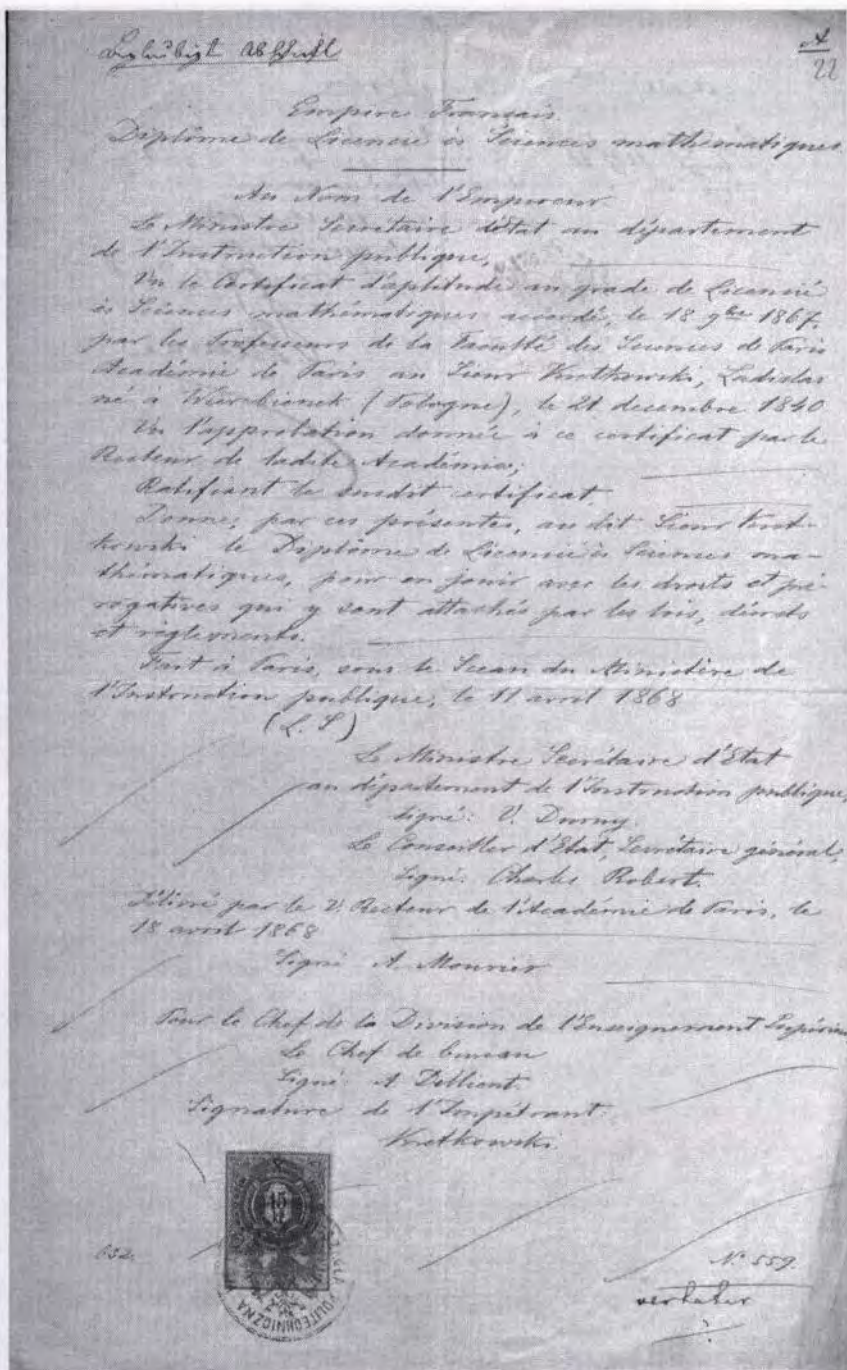 A
22
Empire Français
Diplôme de Licencié ès Sciences mathématiques
Au Nom de l'Empereur
Le Ministre Secrétaire d'état au département
de l'Instruction publique,
Vu le Certificat d'aptitude au grade de Licencié
ès Sciences mathématiques accordé, le 18 9bre 1867,
par les Professeurs de la Faculté des Sciences de Paris
Académie de Paris au Sieur Kretkowski, Ladislas
né à Wierzbinek (Pologne), le 21 decembre 1840
Vu l'approbation donnée à ce certificat par le
Recteur de ladite Académie;
Ratifiant le susdit certificat.
Donne, par ces présentes, au dit Sieur Kret-
kowski le Diplôme de Licencié ès Sciences ma-
thématiques, pour en jouir avec les droits et pré-
rogatives qui y sont attachés par les lois, décrets
et règlements.
Fait à Paris, sous le Sceau du Ministère de
l'Instruction publique, le 11 avril 1868
(L. S)
Le Ministre Secrétaire d'Etat
au département de l'Instruction publique,
signé: V. Duruy.
Le Conseiller d'Etat, Secrétaire général,
signé: Charles Robert.
Délivré par le V. Recteur de l'Académie de Paris, le
18 avril 1868
Signé A. Mourier
Pour le Chef de la Division de l'Enseignement Supérieur
Le Chef de bureau
Signé A
Signature de l'Impétrant
Kretkowski.
15
632.
N. 559.
POLITECHNICZNA